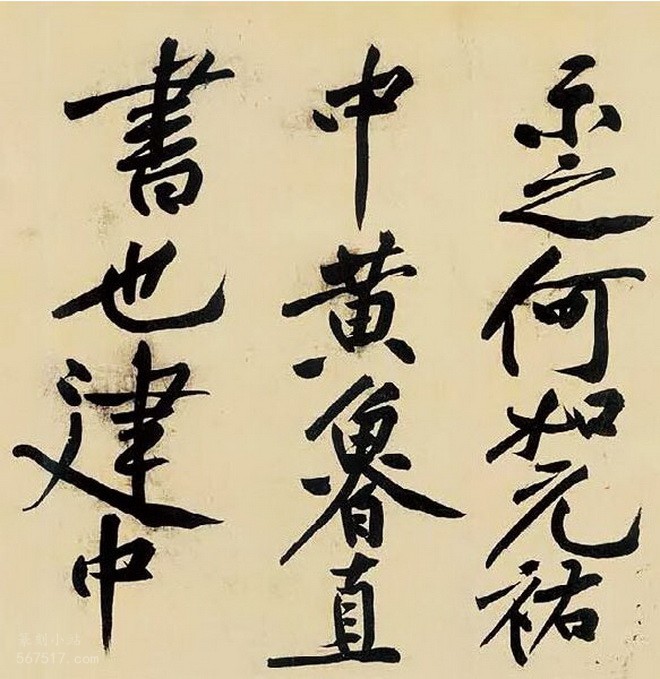 示之何如元祐
中黄魯直
書也建中
篆刻小站
567517.com